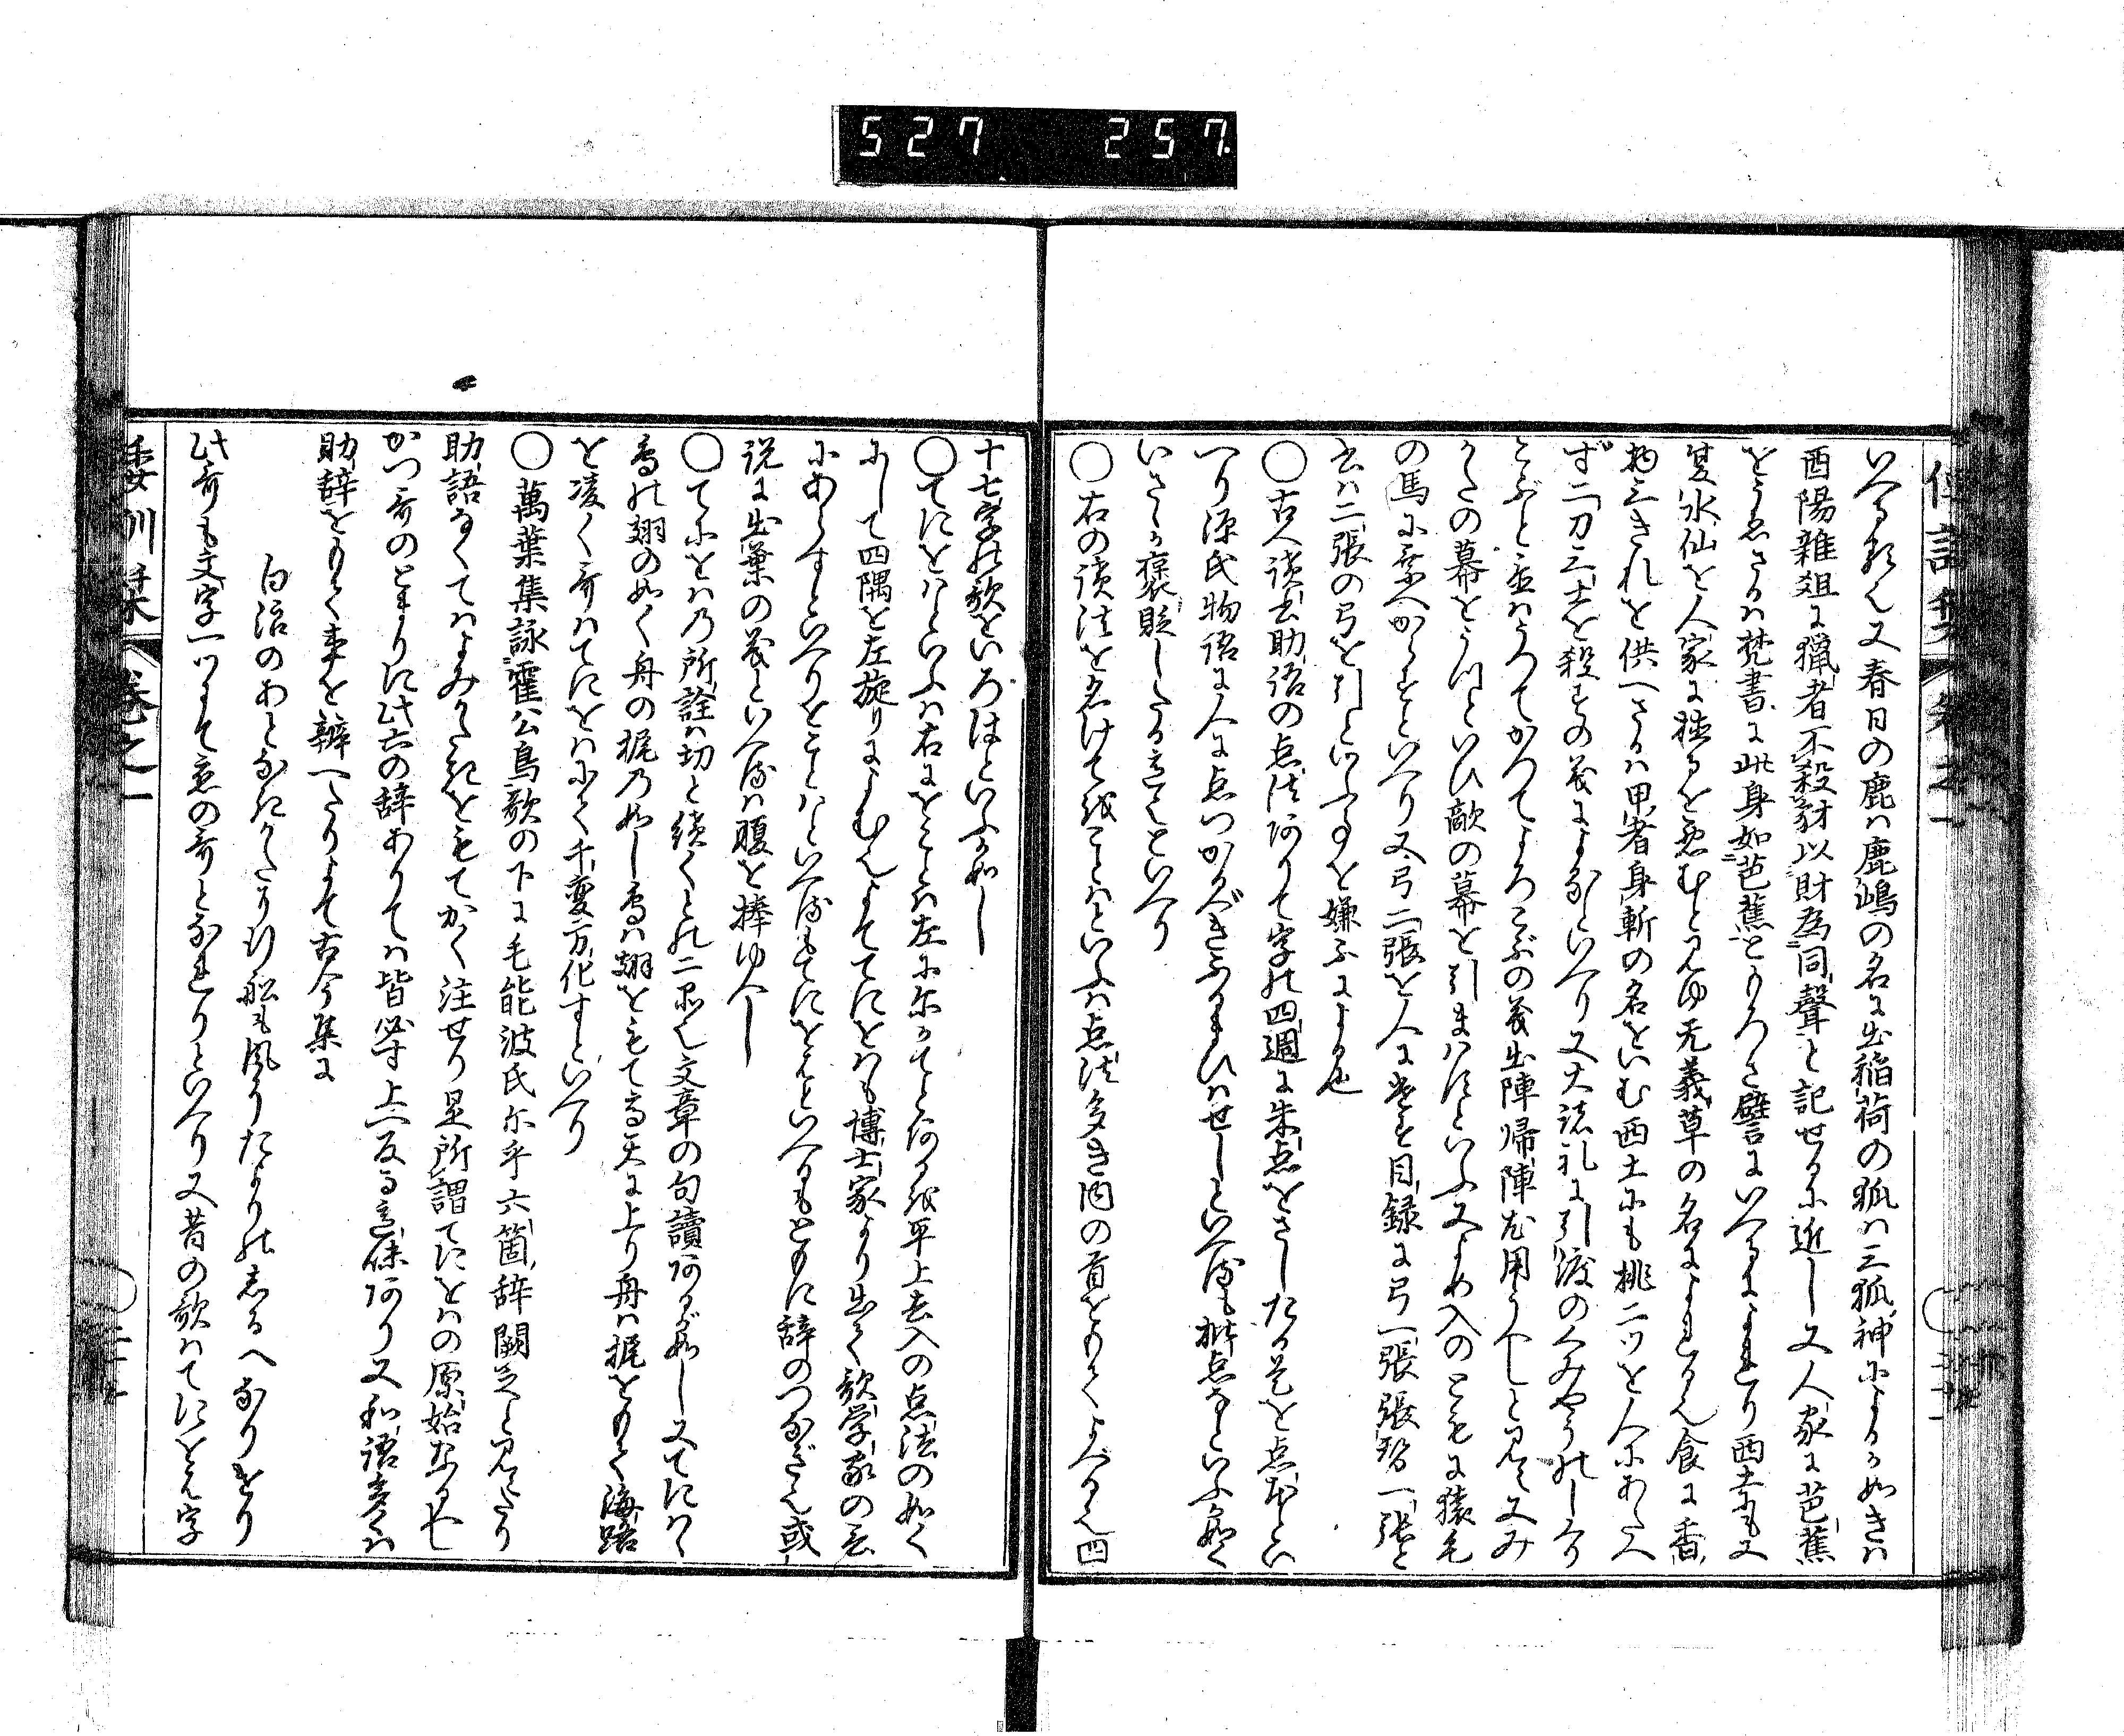 527 257.
いへる類也又春日の鹿ハ鹿嶋の名に出稲荷の狐ハ三狐神によるか如きハ
酉陽雜俎に獵者不殺豺以財為同聲と記せるに近し又人家に芭蕉
をうゑさるハ梵書に此身如芭蕉とよろさ譬にいへるによれり西土にも又
夏水仙を人家に種るを忌むと見ゆ无義草の名によれる也食に香
物三きれを供へさるハ甲者身斬の名をいむ西土にも桃二ツを人にあたへ
ず二刀三士を殺すの義によるといへり又大諸礼に引渡のくみやうのしろ
こぶと豆ハうつてかつてよろこぶの義出陣帰陣尤用うへしと見え又み
かたの幕をうつといひ敵の幕を引まハすといふ又よめ入のともに猿毛
の馬に乗へからすといへり又弓二張を人に送る目録に弓一張張替一張と
云ハ二張の弓を引といふ事を嫌ふによる也
○古人讀去助語の点法ありて字の四週に朱点をさしたる是を点本とい
へり源氏物語に人に点つかるべきふるまひハせしといへるも批点なといふ如く
いさゝか褒貶したる意也といへり
○右の讀法を名けてをことはといふハ点法多き内の首をもてよへる也四
十七字の歌をいろはといふか如し
○てにをハといふハ右にをことハ左にかてとあるを平上去入の点法の如く
にして四隅を左旋りによむ也よててにをハも博士家より出て歌学家の云
にあらすといへりをことハといへるもてにをハといへるもともに辞のつかひさま也或
説に出葉の義といへるハ腹を捧ゆへし
○てにをハ乃所詮ハ切と續くとの二品也文章の句讀あるが如し又てにハハ
鳥の翅のごとく舟の梶乃如し鳥ハ翅をもて高天に上り舟ハ梶をもて海路
を凌く哥ハてにをハにて千変万化すといへり
○萬葉集詠霍公鳥歌の下に毛能波氏尓乎六箇辞闕之と見えたり
助語なくてハよみかたきをもてかく注せり是所謂てにをハの原始なる也
かつ哥のとまりに此六の辞ありてハ皆必す上へ反る意味あり又和語多くハ
助辞をもて事を辨へたりよて古今集に
白浪のあとなきかたに行船も風そたよりのしるへなりける
此哥も文字一ツにて恋の哥となれりといへり又昔の歌ハてにをハ字
倭訓栞 巻之一